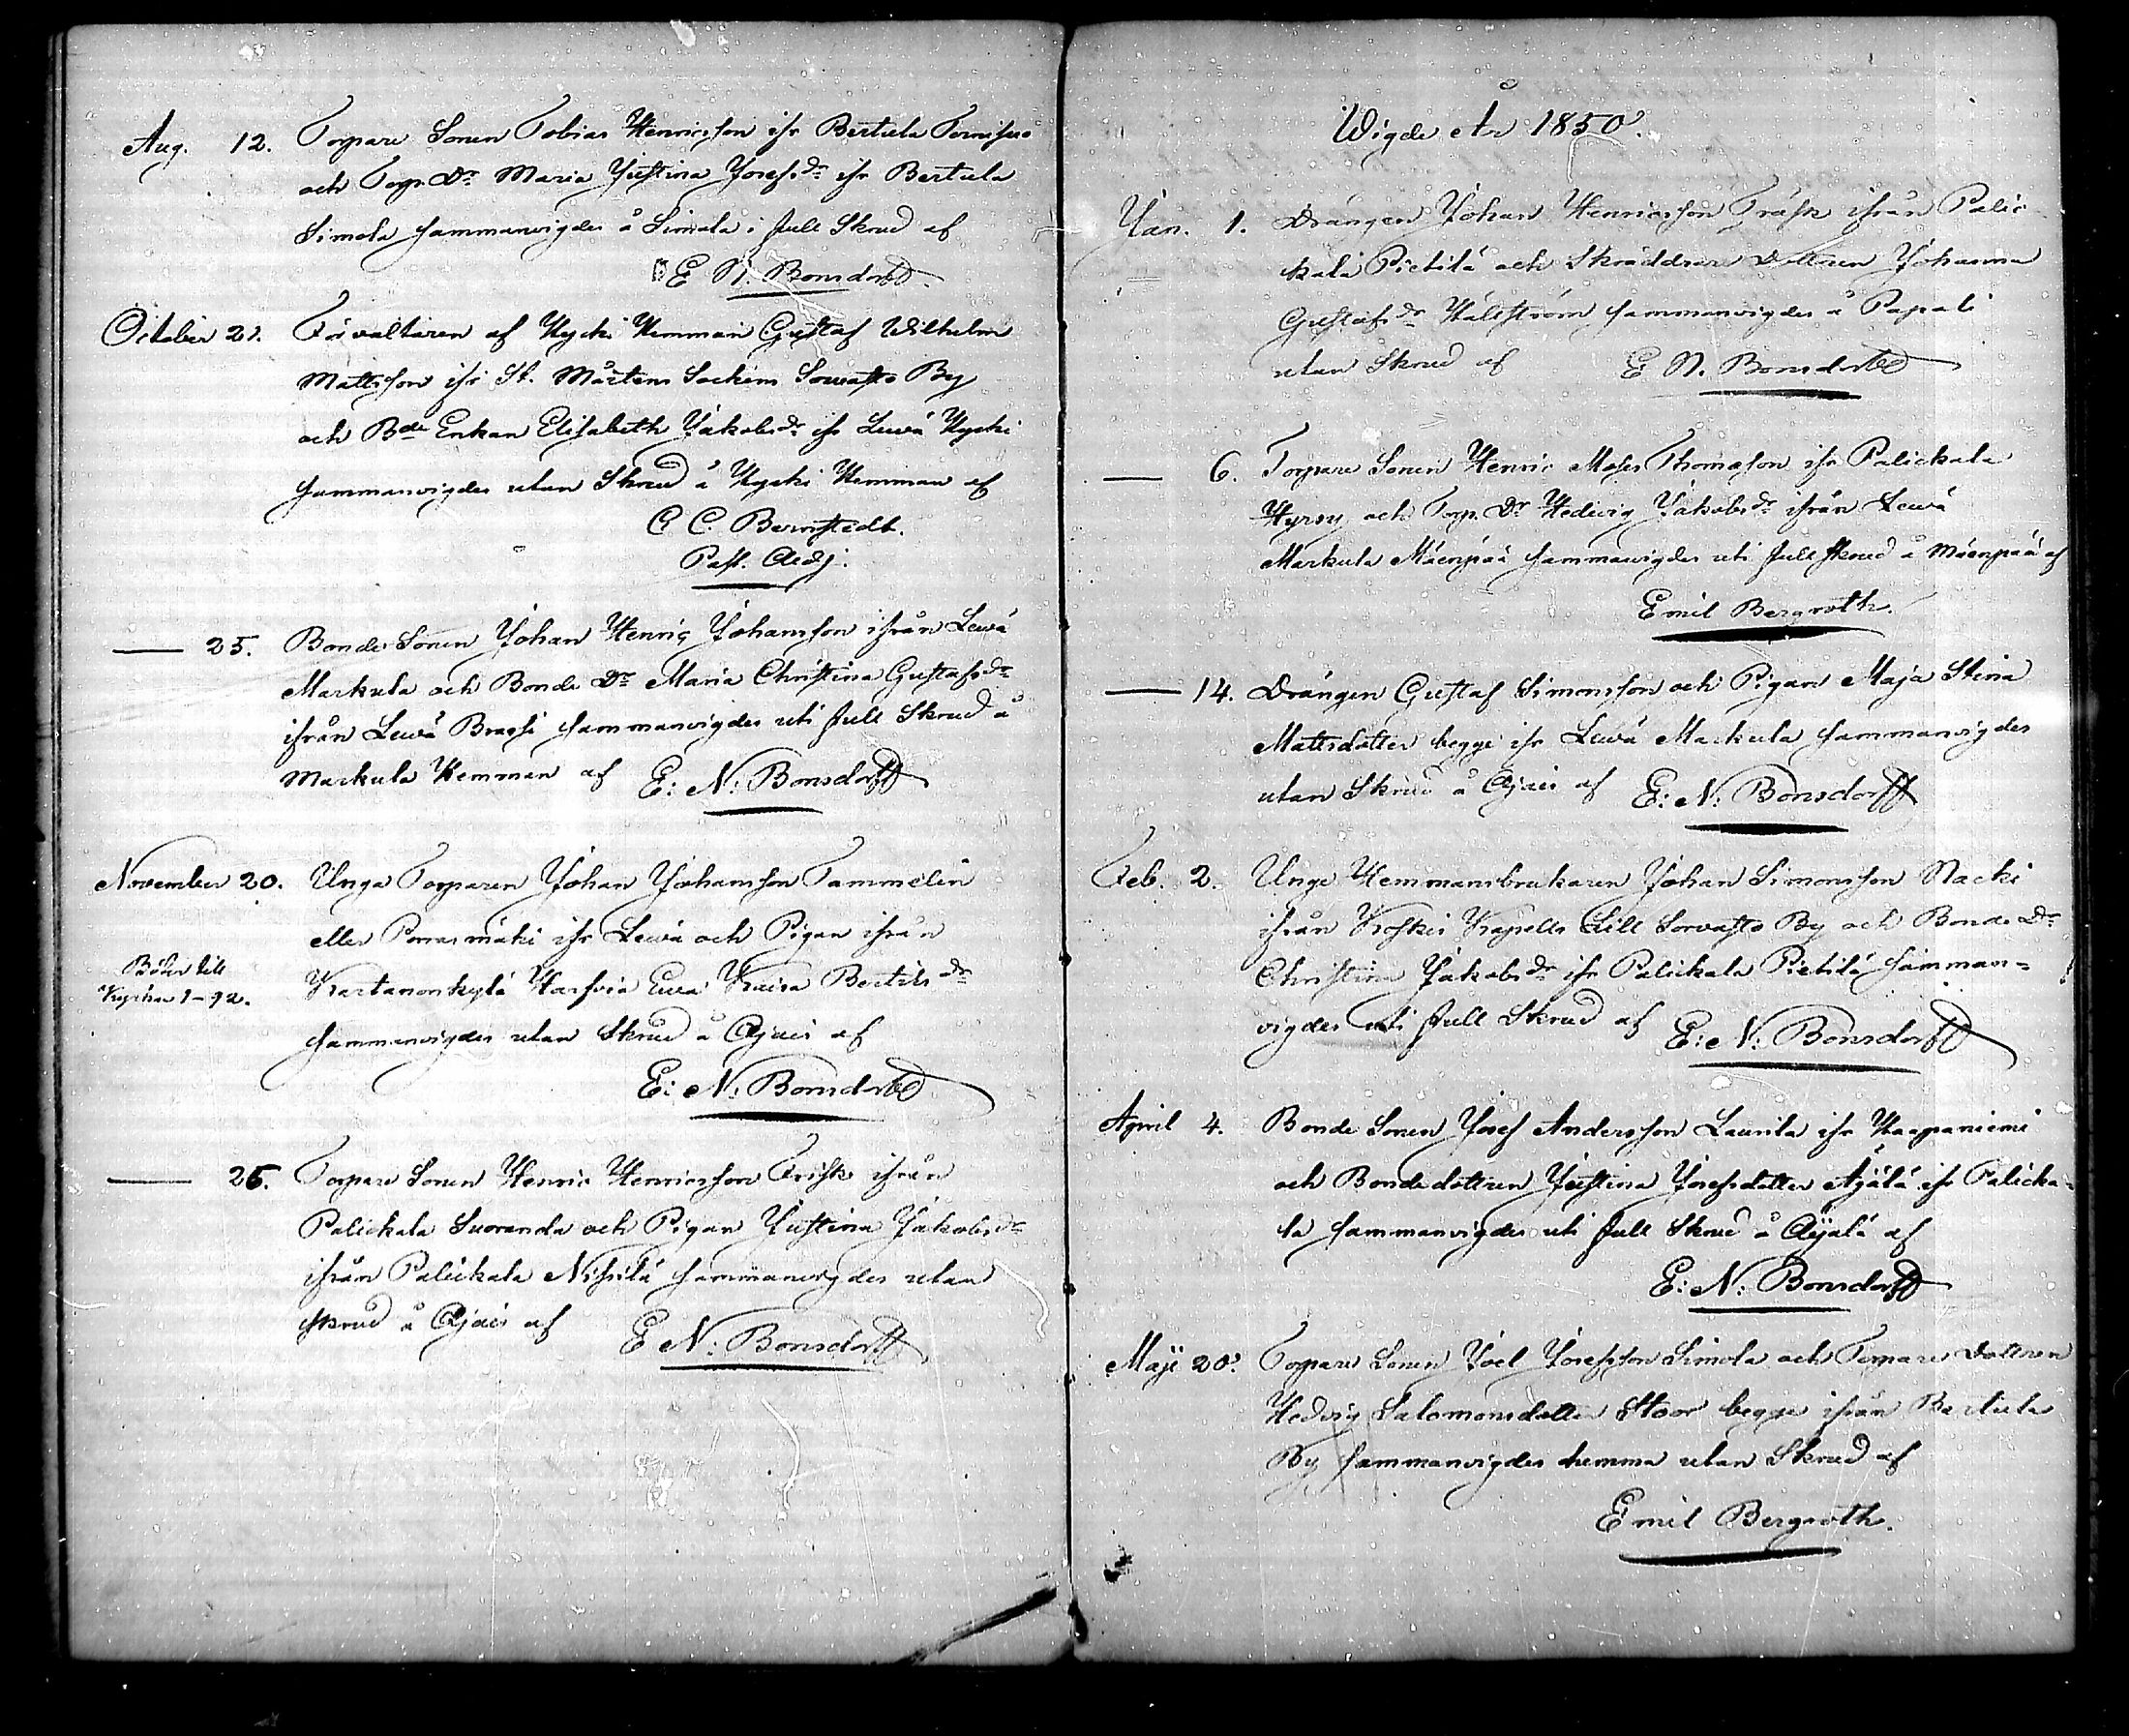 Aug. 12. Torpare Sonen Tobias Henricsson ifr Bertula Tornisuo
och Torp. Dr Maria Justina Josefsdr ifr Bertula
Simola sammanvigdes å Simola i full Skrud af
E N. Bonsdorff
October 21. Förvaltaren af Hycki Hemman Gustaf Wilhelm
Mattsson ifr St. Mårtens Sockens Sorvasto By
och Bde Enkan Elisabeth Jakobsdr ifr Lewä Hycki
Sammanvigdes utan Skrud å Hycki Hemman af
C C. Bernstedt.
Past. Adj.
25. Bonde Sonen Johan Henric Johansson ifrån Lewä
Markula och Bonde Dr Maria Christina Gustafsdr
ifrån Lewä Brasi sammanvigdes uti full Skrud å
Markula Hemman af E: N: Bonsdorff
November 20. Unga Torparen Johan Johansson Tammelin
eller Porrasmäki ifr Lewä och Pigan ifrån
Böter till
Kyrkan 1-92.
Kartanonkylä Harfvia Ewa Kaisa Bertilsdr
sammanvigdes utan Skrud å Ajais af
E: N: Bonsdorff
26. Torpare Sonen Henric Henricsson Frisk ifrån
Palickala Suoranda och Pigan Justina Jakobsdr
ifrån Palickala Nissilä sammanvigdes utan
skrud å Ajais af E N: Bonsdorff
Wigde År 1850.
Jan. 1. Drängen Johan Henricsson Träsk ifrån Palic-
kala Pietilä och Skräddare Dottren Johanna
Gustafsdr Hällström sammanvigdes å Papali
utan Skrud af E N. Bonsdorff
6. Torpare Sonen Henric Moses Thomasson ifr Palickala
Hyrsy och Torp. Dr Hedvig Jakobsdr ifrån Lewä
Markula Mäenpää sammanvigdes uti full skrud å Mäenpää af
Emil Bergroth.
14. Drängen Gustaf Simonsson och Pigan Maja Stina
Mattsdotter begge ifr Lewä Markula sammanvigdes
utan Skrud å Ajais af E: N: Bonsdorff
Feb. 2. Unge Hemmansbrukaren Johan Simonsson Nacki
ifrån Koskis Kapells Lill Sorvasto By och Bonde Dr
Christina Jakobsdr ifr Palickala Pietilä samman=
vigdes uti full Skrud af E: N: Bonsdorff
April 4. Bonde Sonen Josef Andersson Launila ifr Haapaniemi
och Bondedottren Justina Josefsdotter Äjälä ifr Palicka=
la sammanvigdes uti full Skrud å Äijälä af
E: N: Bonsdorff
Maji 20. Torpare Sonen Joel Josefsson Simola och Torpare Dottren
Hedvig Salomonsdotter Stoor begge ifrån Bertula
By sammanvigdes hemma utan Skrud af
Emil Bergroth.